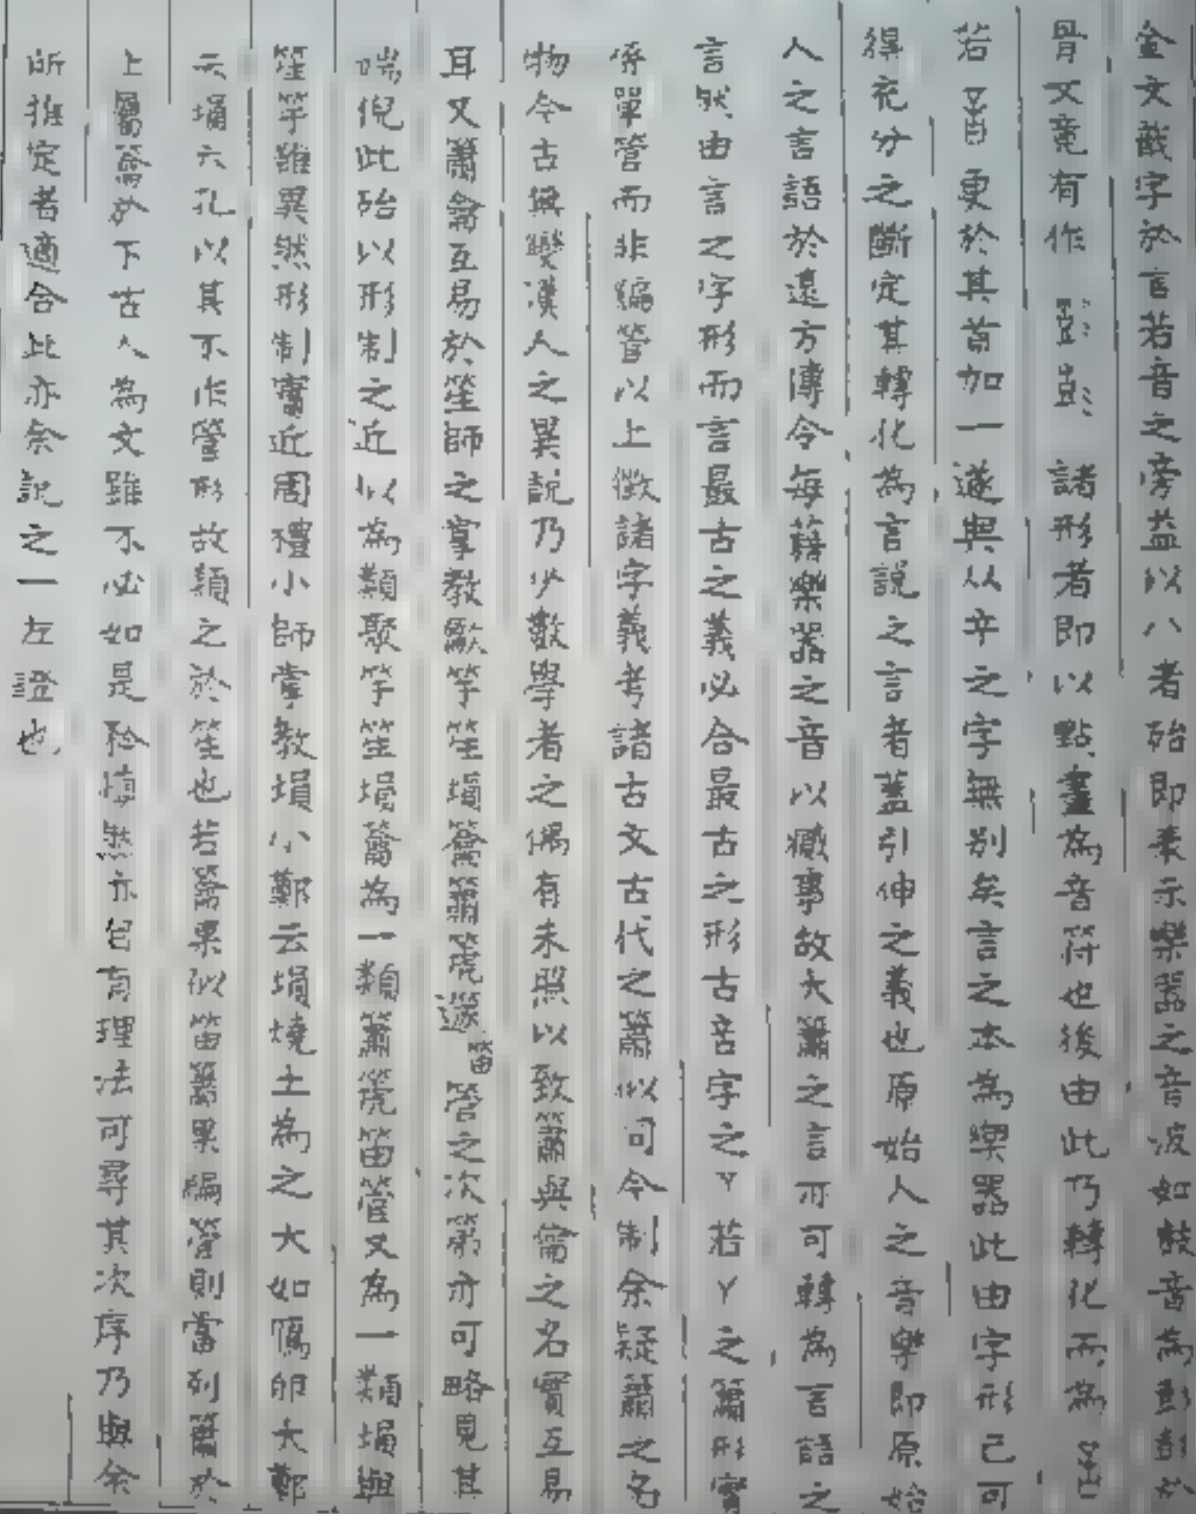 金文識字於言若音之旁益以八者殆即表示樂器之音波如鼓音為彭彭於
骨文竟有作諸形者即以點畫為音符也後由此乃轉化而為
若更於其首加一遂與从辛之字無別矣言之本為樂器此由字形已可
得充分之斷定其轉化為言說之言者蓋引伸之義也原始人之音樂即原始
人之言語於遠方傳令每藉樂器之音以藏事故大簫之言亦可轉為言語之
言然由言之字形而言最古之義必合最古之形古言字之若之簫形實
係單管而非編管以上徵諸字義考諸古文古代之簫似同今制余疑簫之名
物今古無變漢人之異說乃少數學者之偶有未照以致簫與龠之名實互易
耳又簫龠互易於笙師之掌教龡竽笙塤籥簫篪篴管之次第亦可略見其
端倪此殆以形制之近似為類聚竽笙塤籥為一類簫篪笛管又為一類塤與
笙竽雖異然形制實近周禮小師掌教塤小鄭云塤燒土為之大如鴈卵大鄭
云塤六孔以其不作管形故類之於笙也若籥果似笛簫果編管則當列簫於
上屬籥於下古人為文雖不必如是矜慎然亦自有理法可尋其次序乃與余
所推定者適合此亦余說之一左證也